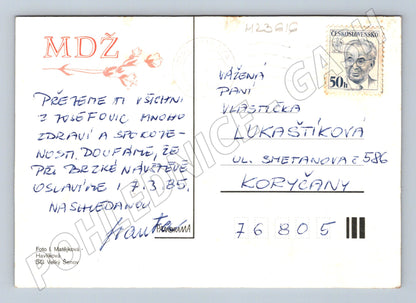 MDŽ
PŘEJEME TI VŠICHNI
Z JOLEFOVIC MNOHO
ZDRAVÍ A SPOKOJE-
NOSTI. DOUFÁME, ŽE
PŘI BRZKÉ NÁVŠTĚVĚ
OSLAVÍME I 7.3.85.
NASHLEDANOU
Foto I. Matějková -
Havlíková
SG Velký Šenov
PANORAMA
H23616
ČESKOSLOVENSKO
50h
VÁŽENÁ
PANÍ
VLASTIČKA
LUKAŠTÍKOVÁ
UL. SMETANOVA č 586
KORYČANY
76805
POHLEDNICE - GA